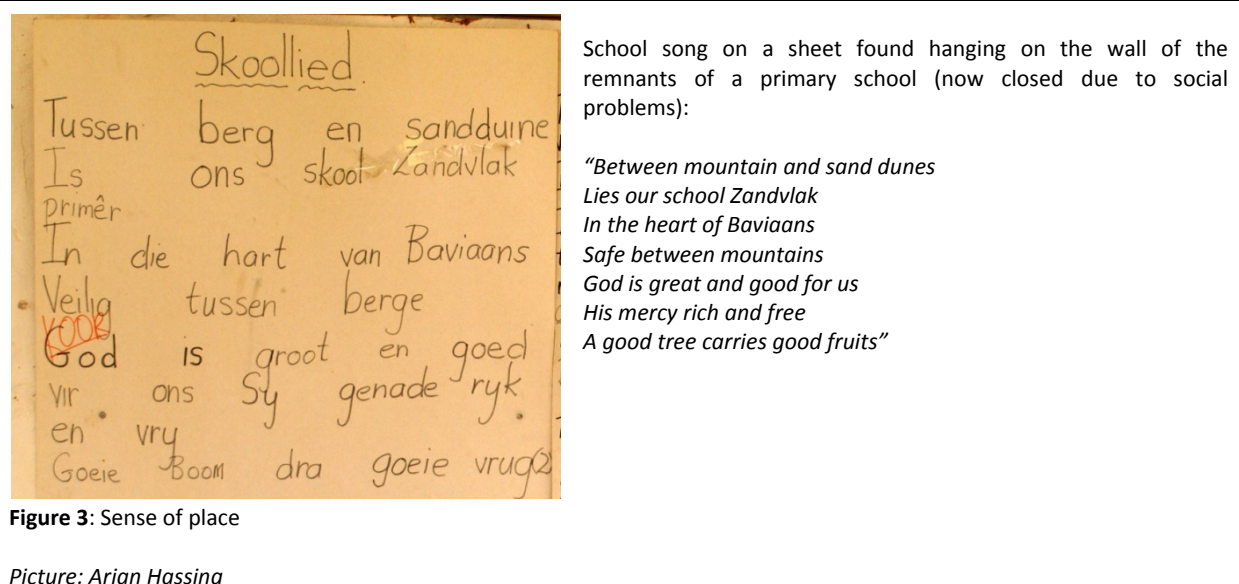 Skoollied.
Tussen berg en sandduine
Is ons skool Zandvlak
primêr
In die hart van Baviaans
Veilig tussen berge
VOOR
God is groot en goed
vir ons Sy genade ryk
en vry
Goeie Boom dra goeie vrug(2)
School song on a sheet found hanging on the wall of the
remnants of a primary school (now closed due to social
problems):
“Between mountain and sand dunes
Lies our school Zandvlak
In the heart of Baviaans
Safe between mountains
God is great and good for us
His mercy rich and free
A good tree carries good fruits”
Figure 3: Sense of place
Picture: Arjan Hassing